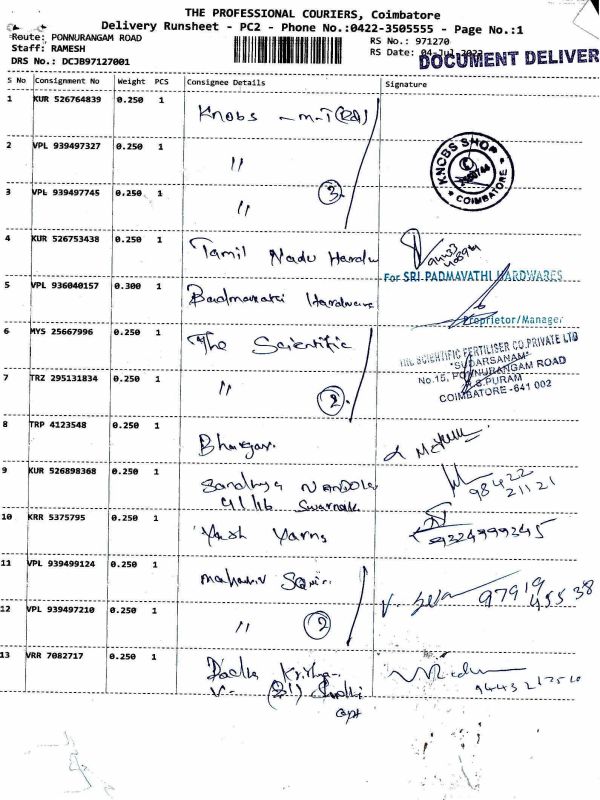 THE PROFESSIONAL COURIERS, Coimbatore
Delivery Runsheet - PC2 - Phone No.:0422-3505555 - Page No.:1
Route: PONNURANGAM ROAD
RS No.: 971270
Staff: RAMESH
RS Date: 04-Jul-2022
DOCUMENT DELIVER
DRS No.: DCJB97127001
S No Consignment No Weight PCS Consignee Details Signature
1 KUR 526764839 0.250 1 Knobs
2 VPL 939497327 0.250 1 "
KNOBS SHOP
COIMBATORE
3 VPL 939497745 0.250 1 " 3
4 KUR 526753438 0.250 1 Tamil Nadu Hardw
For SRI PADMAVATHI HARDWARES
5 VPL 936040157 0.300 1 Hardware
Proprietor/Manager
6 MYS 25667996 0.250 1 The Scientific
THE SCIENTIFIC FERTILISER CO.PRIVATE LTD
"SUDARSANAM"
No.15, PONNURANGAM ROAD
7 TRZ 295131834 0.250 1 " 2
R.S.PURAM
COIMBATORE-641 002
8 TRP 4123548 0.250 1
9 KUR 526898368 0.250 1 Sandhya
98422
21121
10 KRR 5375795 0.250 1 Yash Yarns
9324999345
11 VPL 939499124 0.250 1 Mahaviv
97919
45538
12 VPL 939497210 0.250 1 " 2
13 VRR 7082717 0.250 1